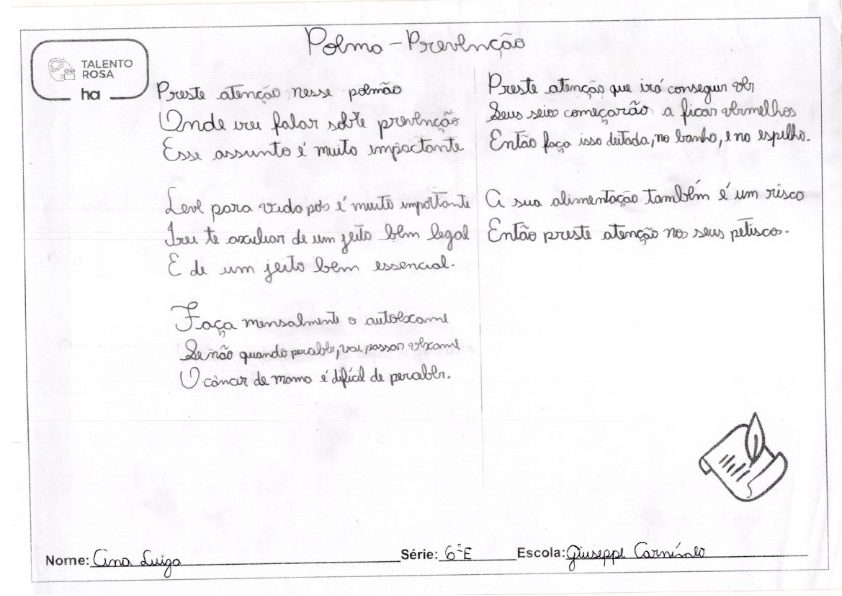 Poema - Prevenção
TALENTO
ROSA
ha
Preste atenção nesse poemão
Onde irei falar sobre prevenção
Esse assunto é muito impactante
Leve para vida pos é muito importante
Irei te auxiliar de um jeito bem legal
E de um jeito bem essencial.
Faça mensalmente o autoexame
Se não quando perceber, vai passar vexame
O câncer de mama é difícil de perceber.
Preste atenção que irá conseguir ver
Seus seios começarão a ficar vermelhos
Então faça isso deitada, no banho, e no espelho.
A sua alimentação também é um risco
Então preste atenção nos seus petisco.
Nome: Ana Luiza
Série: 6ºE
Escola: Giuseppe